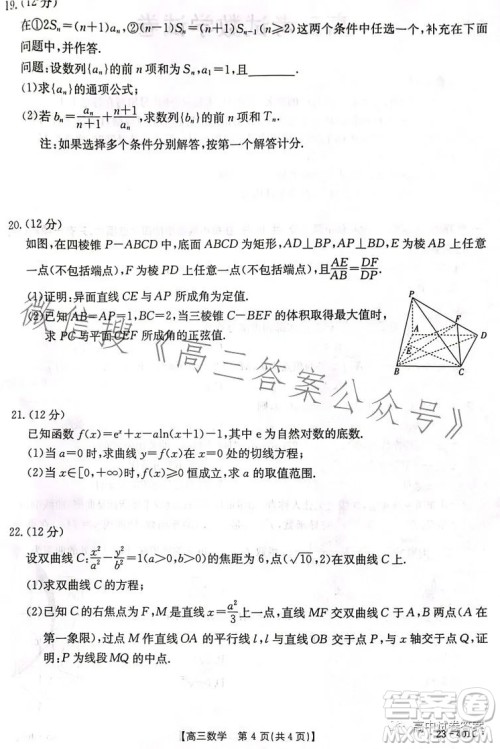 19. (12 分)
在①2Sₙ=(n+1)aₙ,②(n-1)Sₙ=(n+1)Sₙ₋₁(n≥2)这两个条件中任选一个,补充在下面的问题中并作答.
问题:设数列{aₙ}的前 n 项和为 Sₙ,a₁=1,且______.
(1)求{aₙ}的通项公式;
(2)若 bₙ=aₙ/(n+1)+(n+1)/aₙ,求数列{bₙ}的前 n 项和 Tₙ.
注:如果选择多个条件分别解答,按第一个解答计分.
20. (12 分)
如图,在四棱锥 P-ABCD 中,底面 ABCD 为矩形,AD⊥BP,AP⊥BD,E 为棱 AB 上任意
一点(不包括端点),F 为棱 PD 上任意一点(不包括端点),且 AE/AB=DF/DP.
(1)证明:异面直线 CE 与 AP 所成角为定值.
(2)已知 AB=AP=1,BC=2,当三棱锥 C-BEF 的体积取得最大值时,
求 PC 与平面 CEF 所成角的正弦值.
P
F
A
D
E
B
C
21. (12 分)
已知函数 f(x)=eˣ+aln(x+1)-1,其中 e 为自然对数的底数.
(1)当 a=0 时,求曲线 y=f(x)在 x=0 处的切线方程;
(2)当 x∈[0,+∞)时,f(x)≥0 恒成立,求 a 的取值范围.
22. (12 分)
设双曲线 C:x²/a²-y²/b²=1(a>0,b>0)的焦距为 6,点(√10,2)在双曲线 C 上.
(1)求双曲线 C 的方程;
x=a²/3
第一象限),过点 M 作直线 OA 的平行线 l,l 与直线 OB 交于点 P,与双曲线 C 交于点 Q,证
明:P 为线段 MQ 的中点.
【高三数学 第 4 页(共 4 页)】
微信搜《高三答案公众号》
答案圈
高中试卷答案
MXQE.COM